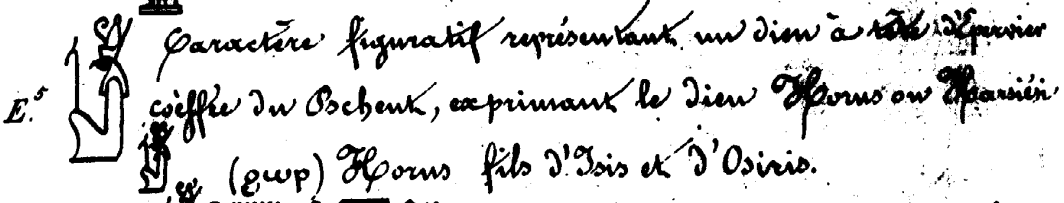 Caractère figuratif représentant un dieu à tête d'Épervier
E.⁵ coëffée du Pschent, exprimant le dieu Horus ou Harsiési
(ϩωρ) Horus fils d'Isis et d'Osiris.